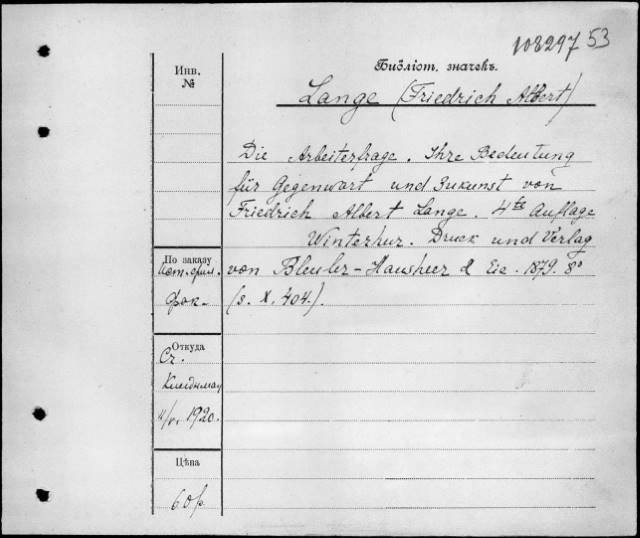 108297 53
Инв.
№
Библіот. значекъ.
Lange (Friedrich Albert)
Die Arbeiterfrage. Ihre Bedeutung
für Gegenwart und Zukunst von
Friedrich Albert Lange. 4te Auflage
Winterhur. Druck und Verlag
По заказу
von Bleuler-Hausheer & Cie. 1879. 8°
Ист.-фил.
(S. X. 404.).
фак.
Откуда
Сч.
1920.
Цѣна
60 р.